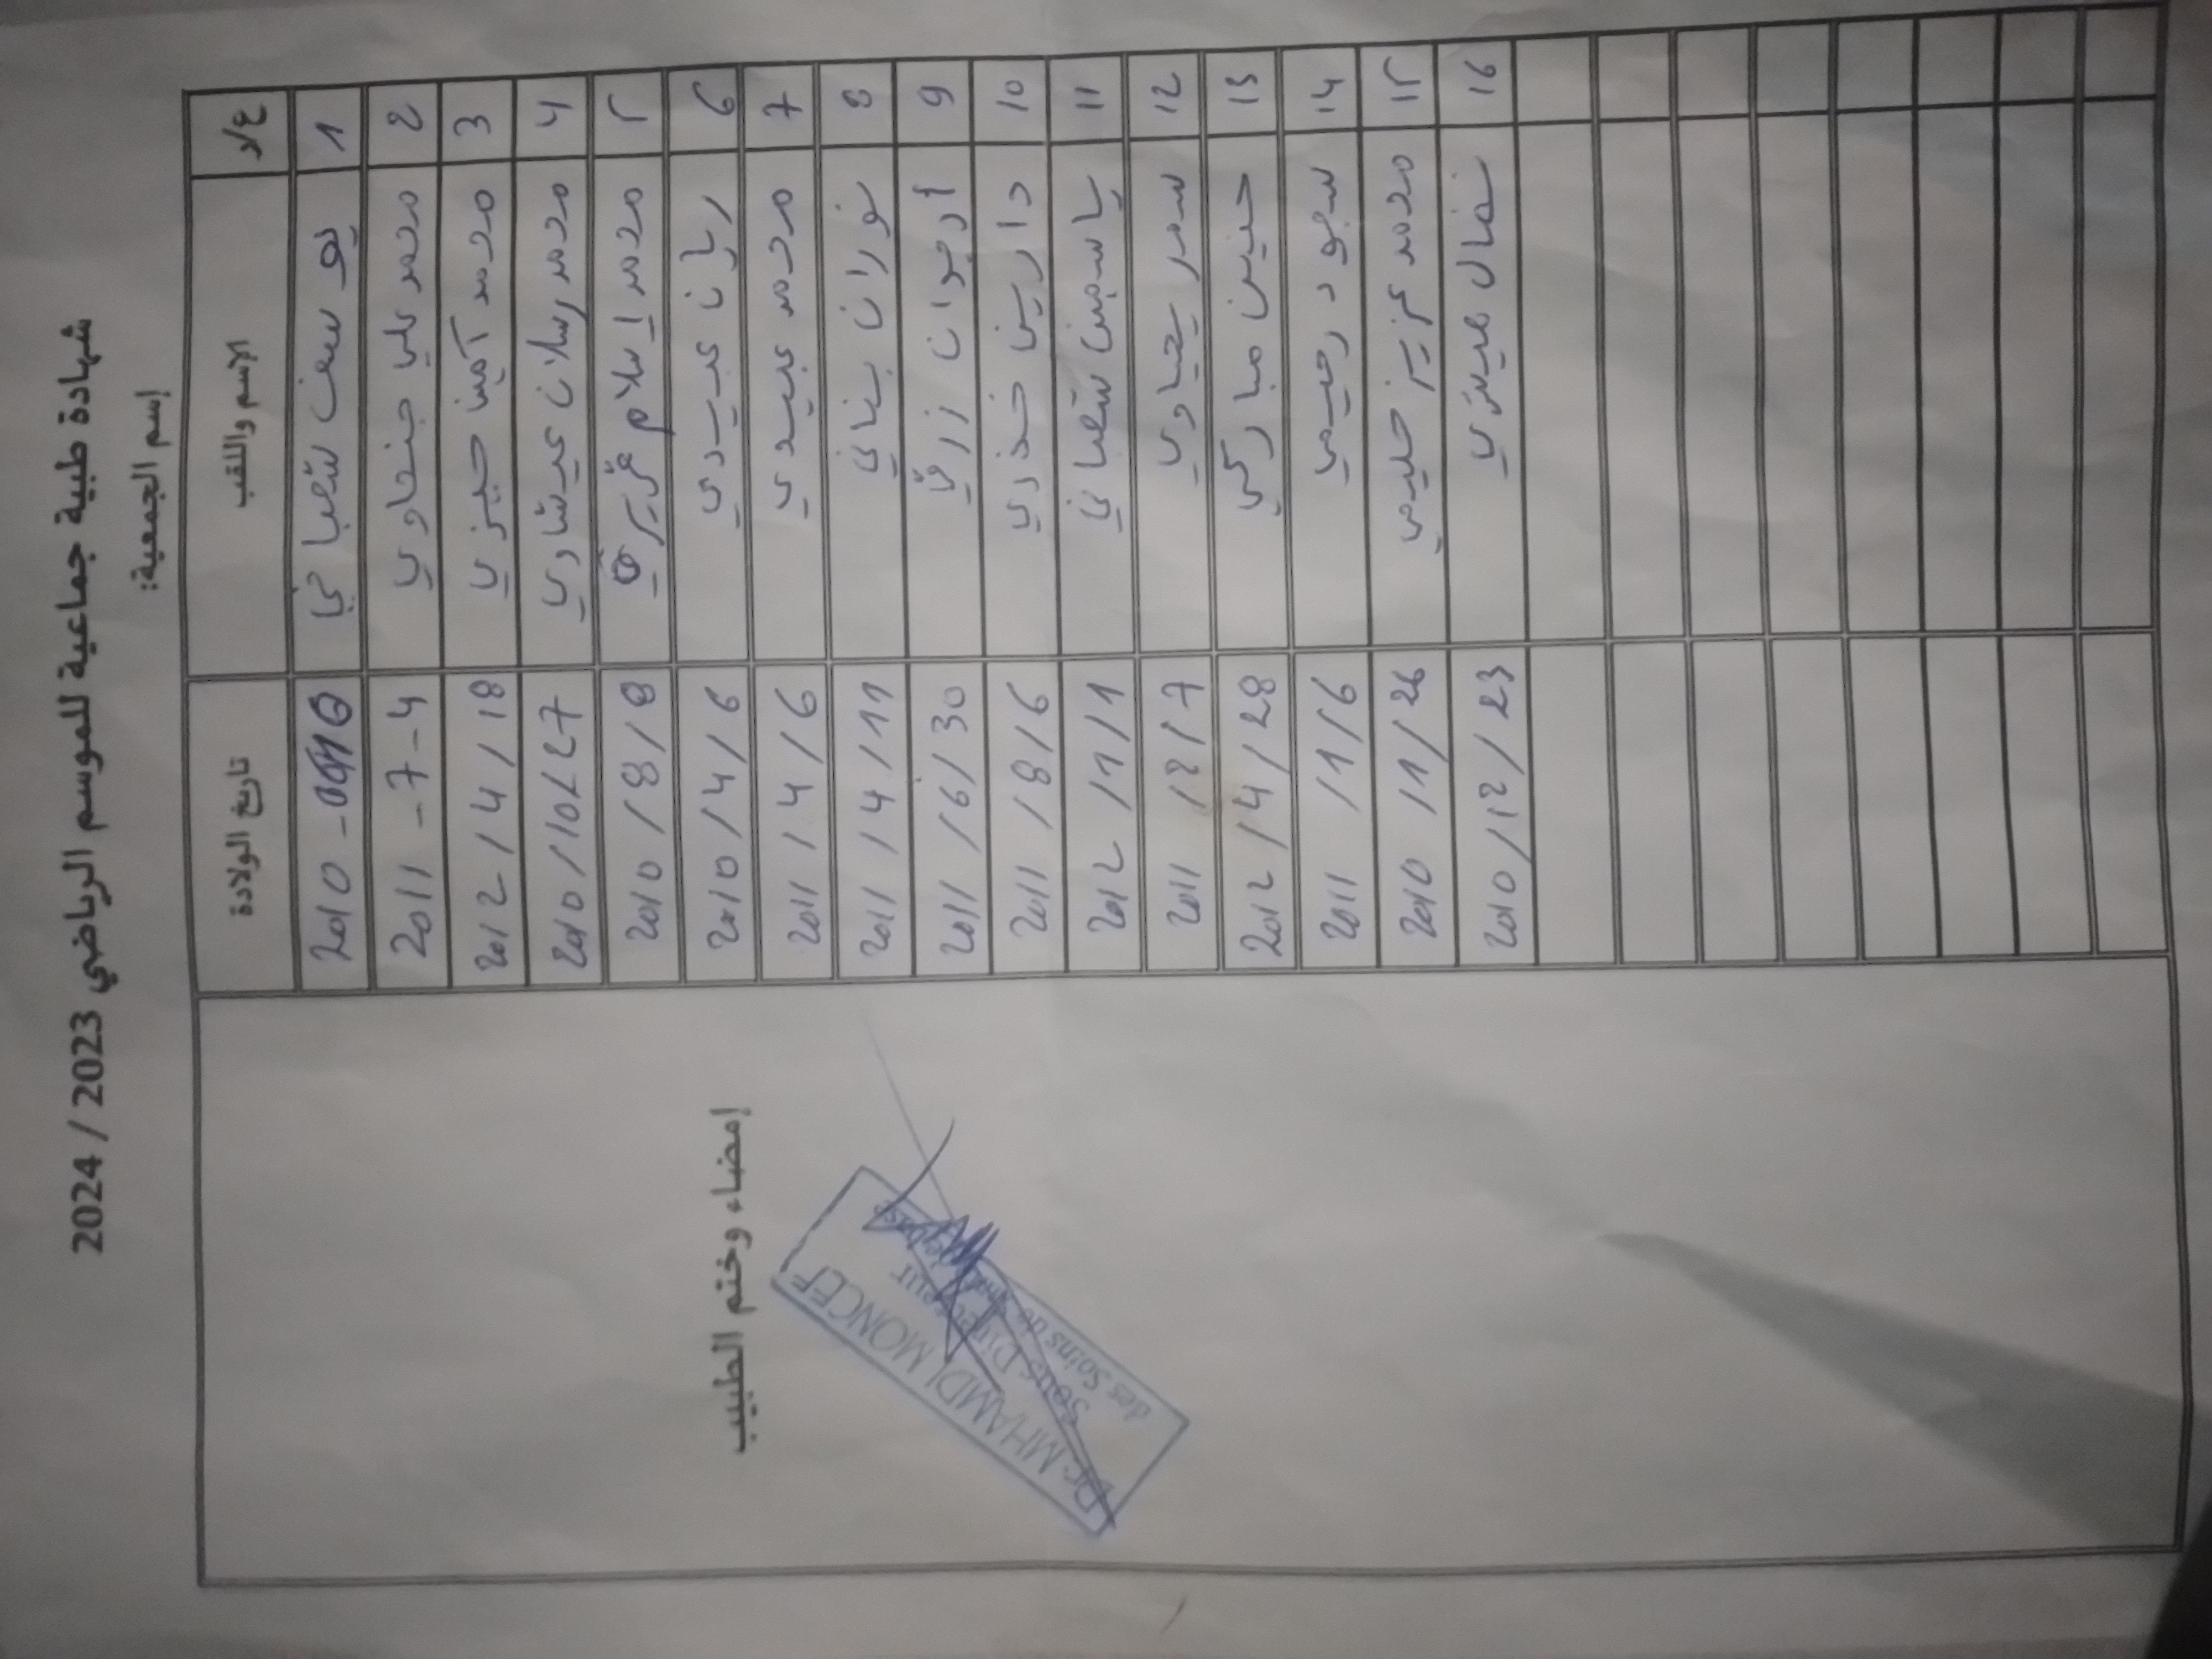 شهادة طبية جماعية للموسم الرياضي 2023 / 2024
إسم الجمعية:
ع/ر الإسم واللقب تاريخ الولادة
1 يوسف شعباني 2010
2 محمد علي جنحاوي 2011 - 7 - 4
3 محمد آمين حيزي 2012 / 4 / 18
4 محمد رسلان عيشاوي 2010 / 10 / 27
5 محمد إسلام 2010 / 8 / 8
6 ريان عبيدي 2010 / 4 / 6
7 محمد عبيدي 2011 / 4 / 6
8 نوران بناني 2011 / 4 / 11
9 أرجوان زرقي 2011 / 6 / 30
10 دارين خذري 2011 / 8 / 6
11 ياسمين شعباني 2012 / 1 / 1
12 سمر يحياوي 2011 / 2 / 7
13 حنين مباركي 2012 / 4 / 28
14 سجود رحيمي 2011 / 1 / 6
15 محمد عزيز حليمي 2010 / 11 / 26
16 نضال 2010 / 12 / 23
إمضاء وختم الطبيب
Dr. MHAMDI MONCEF
Sous Directeur
des Soins de